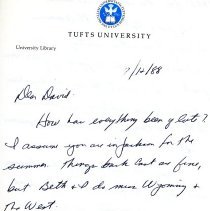 TUFTS UNIVERSITY
University Library
7/12/88
Dear David:
How has everything been of late?
I assume you are in Jackson for the
summer. Things back East are fine,
but Beth & I do miss Wyoming &
the West.